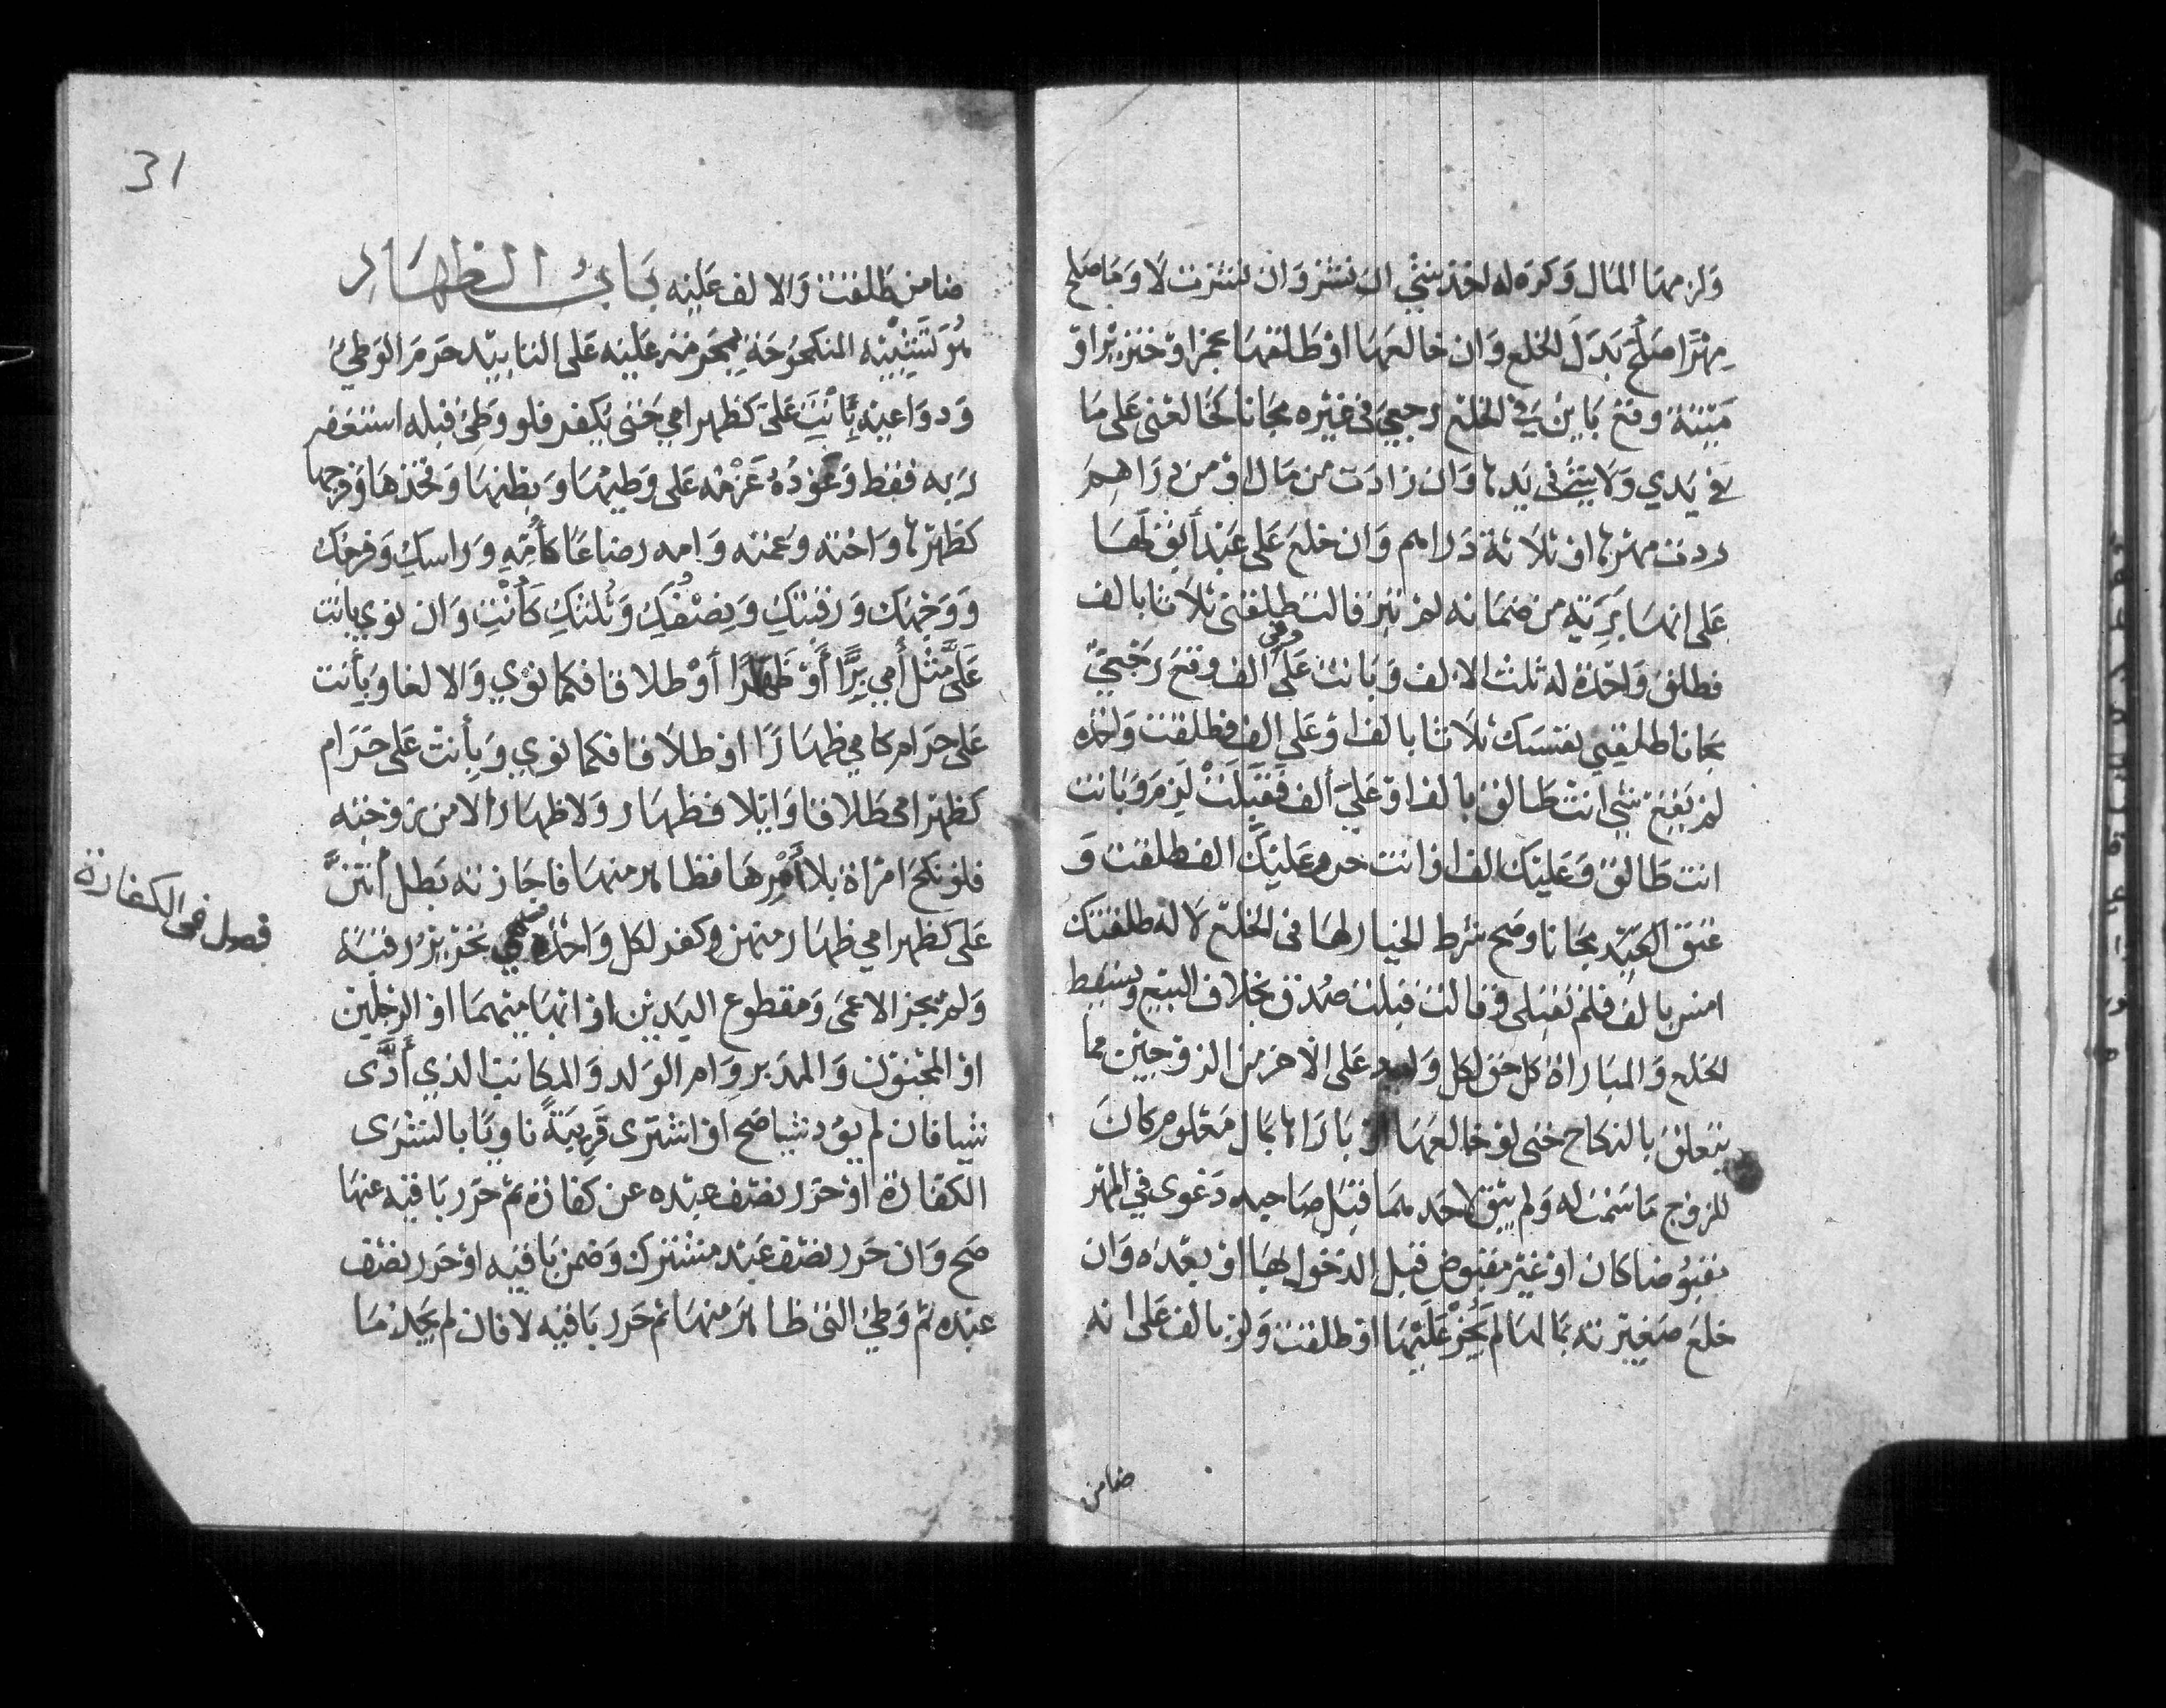 ولزمها المال وكره له اخذ شي ان نشز وان نشزت لا وما صلح
مهرا صلح بدل الخلع وان خالعها او طلقها بخمر او خنزير او
ميتة وقع باين في الخلع رجعي في غيره مجانا كخالعني على ما
في يدي ولا شي في يدها وان زادت من مال او من دراهم
ردت مهرها او ثلاثة دراهم وان خلع على عبد ابق لها
على انها بريه من ضمانه لم تبر قالت طلقني ثلاثا بالف
فطلق واحدة له ثلث الالف وبانت وفي على الف وقع رجعي
مجانا طلقيي نفسك ثلاثا بالف او على الف فطلقت واحده
لم يقع شي انت طالق بالف او علي ألف فقبلت لزم وبانت
انت طالق وعليك الف او انت حر وعليك الف طلقت و
عتق العبد مجانا وصح شرط الخيار لها في الخلع لا له طلقتك
امس بالف فلم تقبلي وقالت قبلت صدق بخلاف البيع ويسقط
الخلع والمباراة كل حق لكل واحد على الاخر من الزوجين مما
يتعلق بالنكاح حتى لو خالعها او باراها بمال معلوم كان
للزوج ما سمت له ولم يبق لاحدهما قبل صاحبه دعوى في المهر
مقبوضا كان او غير مقبوض قبل الدخول بها او بعده وان
خلع صغيرته بمالها لم يجز عليها او طلقت ولو بالف على انه
ضامن
31
ضامن طلقت والالف عليه باب الظهار
هو تشبيه المنكوحة بمحرمة عليه على التابيد حرم الوطي
ودواعيه بأنت علي كظهر امي حتى يكفر فلو وطئ قبله استغفر
ربه فقط وعوده عزمه على وطيها وبطنها وفخذها وفرجها
كظهرها واخته وعمته وامه رضاعا كأمه وراسك وفرجك
ووجهك ورقبتك ونصفك وثلثك كأنت وان نوي بانت
علي مثل أمي برا أو ظهارا أو طلاقا فكما نوي والا لغا وبأنت
على حرام كامي ظهارا او طلاقا فكما نوي وبأنت على حرام
كظهر امي طلاقا او ايلا فظهار ولا ظهار الا من زوجته
فلو نكح امراة بلا أمرها فظاهر منها فاجازته بطل أنتن
على كظهر امي ظهار منهن وكفر لكل واحدة وهي تحرير رقبة
ولم يجز الاعمى ومقطوع اليدين او ابهاميهما او الرجلين
او المجنون والمدبر وام الولد والمكاتب الذي أدى
شيا فان لم يود شيا صح او اشترى قريبة ناويا بالشرى
الكفارة او حرر نصف عبده عن كفارة ثم حرر باقيه عنها
صح وان حرر نصف عبد مشترك وضمن باقيه او حرر نصف
عبده ثم وطئ التى ظاهر منها ثم حرر باقيه لا فان لم يجد ما
فصول في الكفارة